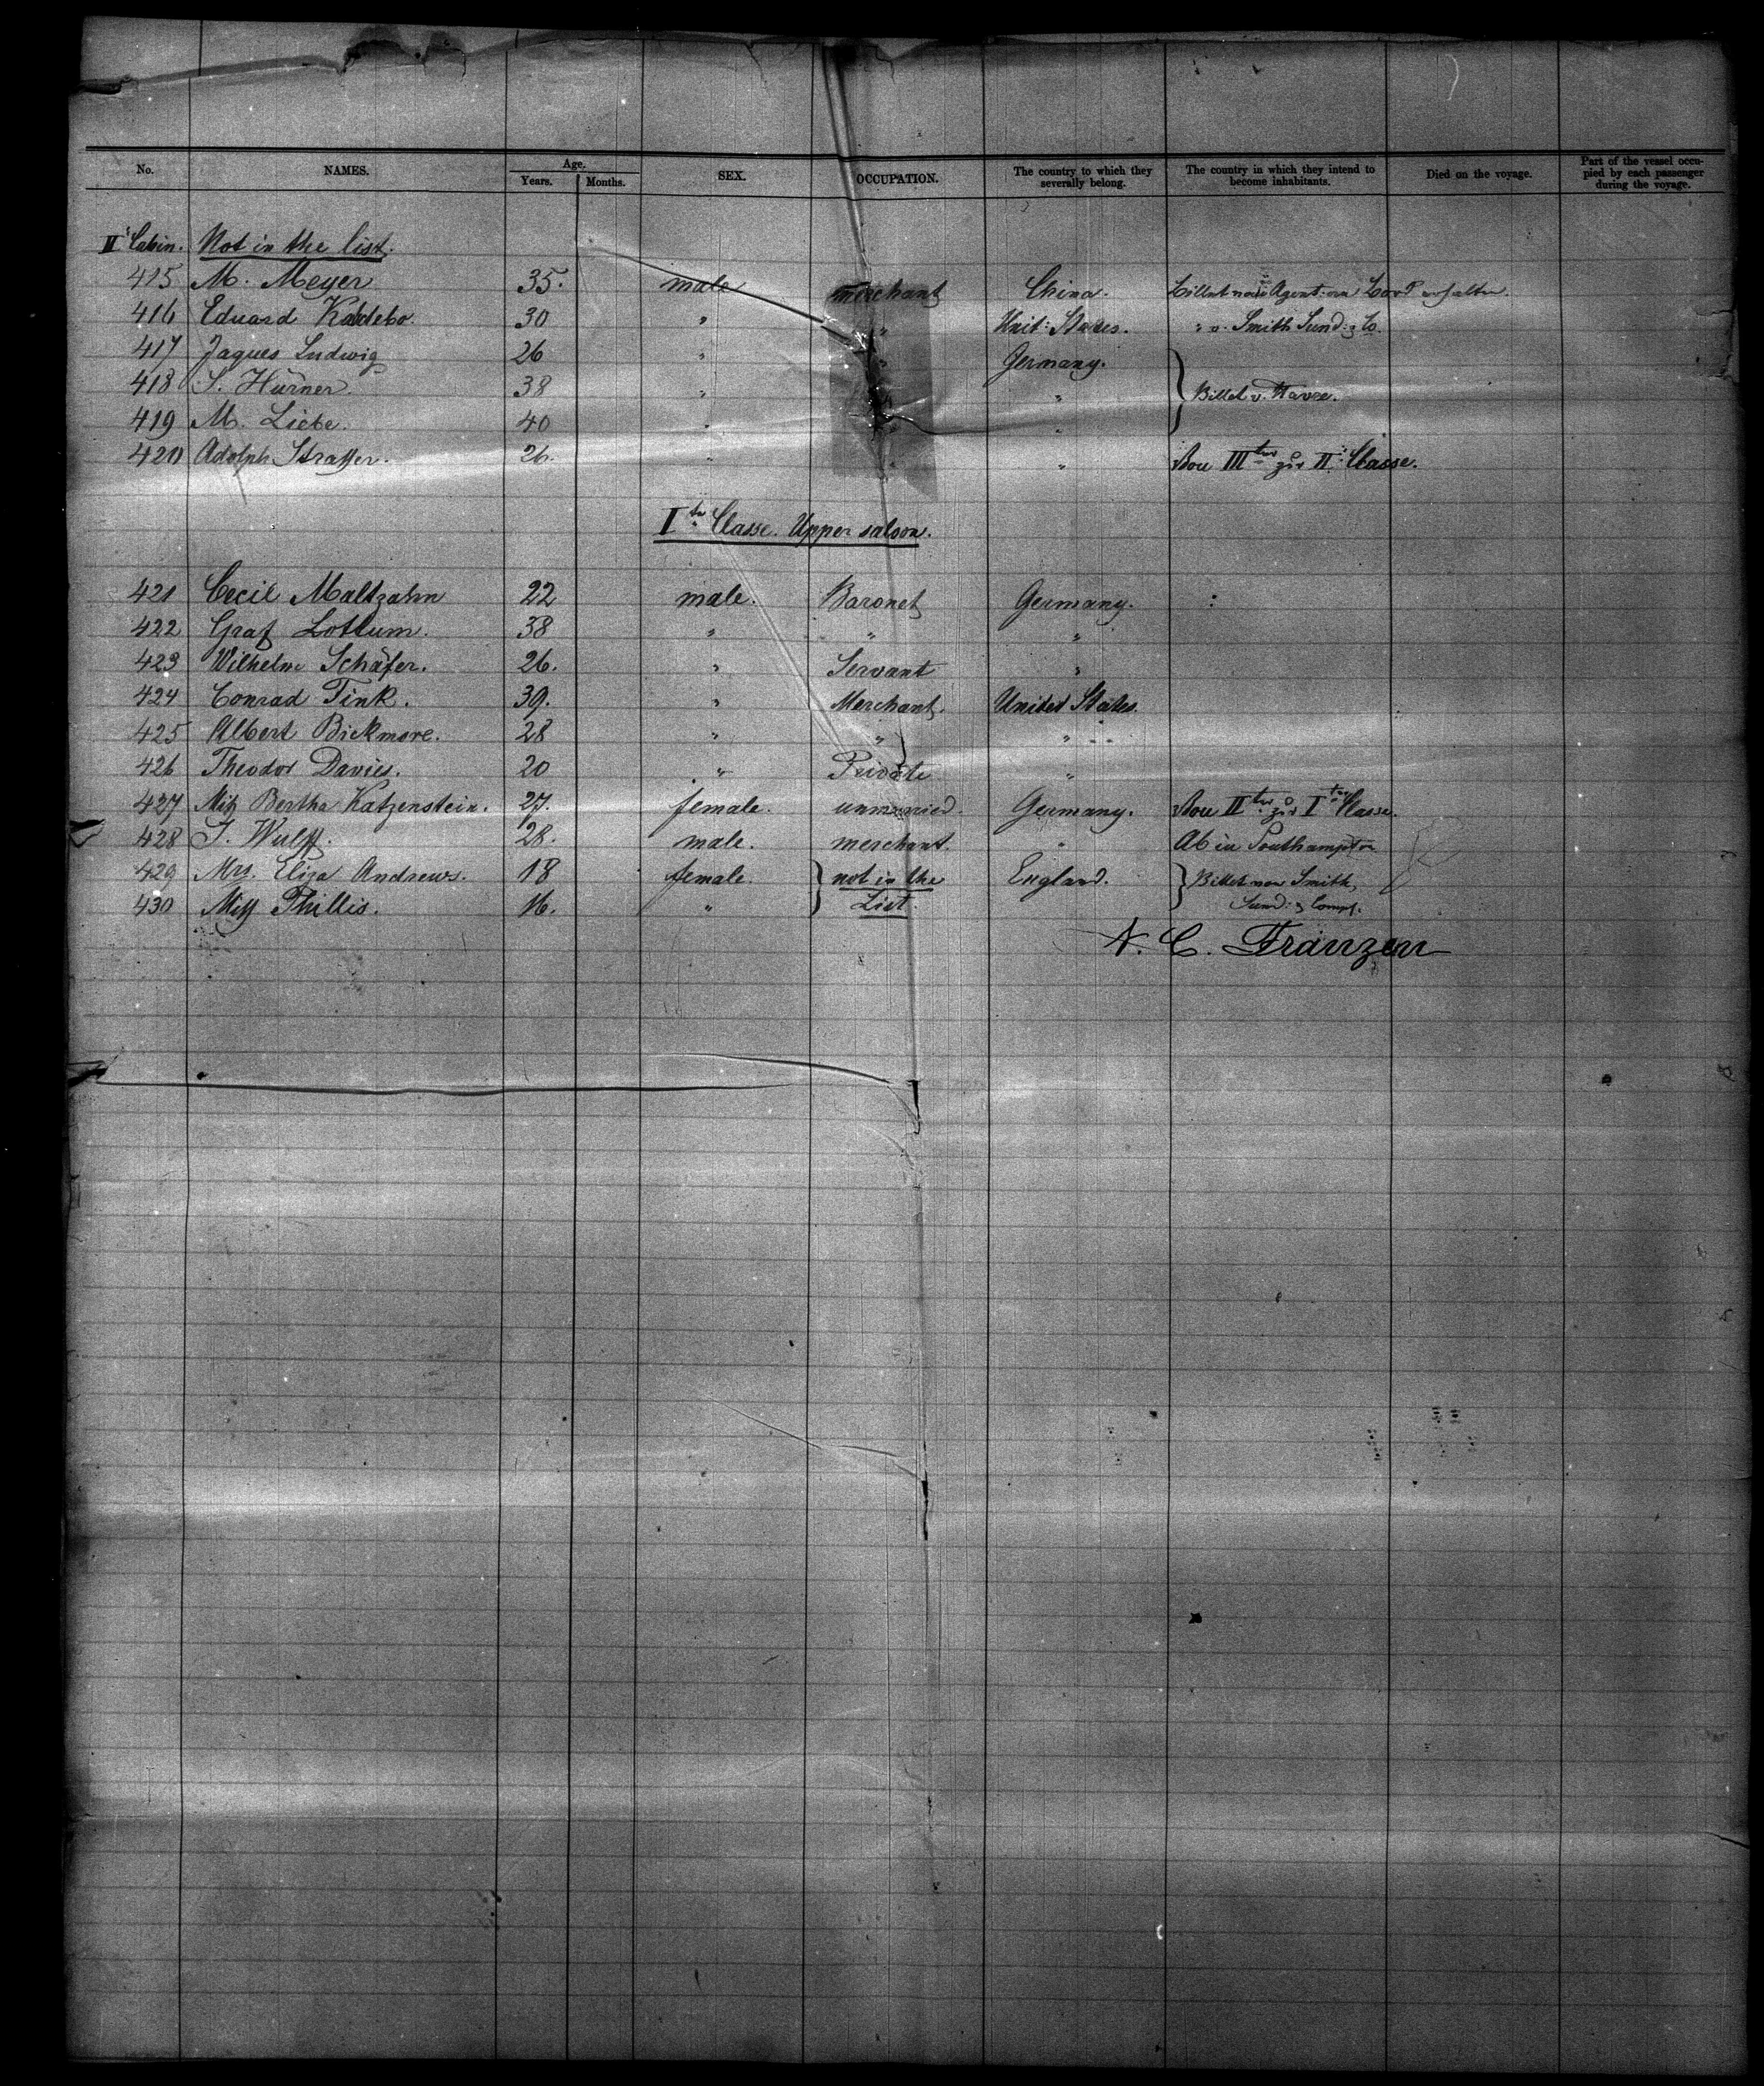 No. NAMES. Age. Years. Months. SEX. OCCUPATION. The country to which they severally belong. The country in which they intend to become inhabitants. Died on the voyage. Part of the vessel occupied by each passenger during the voyage.
II Cabin. Not in the list.
415 M. Meyer 35. male merchant China. Billet Agent
416 Eduard 30 " " Unit: States. " v. Smith Sund: & Co
417 Jaques Ludwig 26 " " Germany.
418 S. Hürner. 38 " " " } Billet v.
419 M. Liebe. 40 " " "
420 Adolph Strasser. 26. " " " Von III ter zur II. Classe.
I te Classe. Upper saloon.
421 Cecil Maltzahn 22 male. Baronet Germany.
422 Graf Lottum. 38 " " "
423 Wilhelm Schäfer. 26. " Servant "
424 Conrad Fink. 39. " Merchant. United States.
425 Albert Bickmore. 28 " " "
426 Theodor Davies. 20 " Private "
427 Miß Bertha Katzenstein. 27. female. unmarried. Germany. Von II ter zur I ten Classe.
428 J. Wulff. 28. male. merchant. " Ab in Southampton
429 Mrs. Eliza Andrews. 18 female. } not in the England. } Billet von Smith,
430 Miss Phillis. 16. " List. Sund: & Comp.
N. C. Franzen